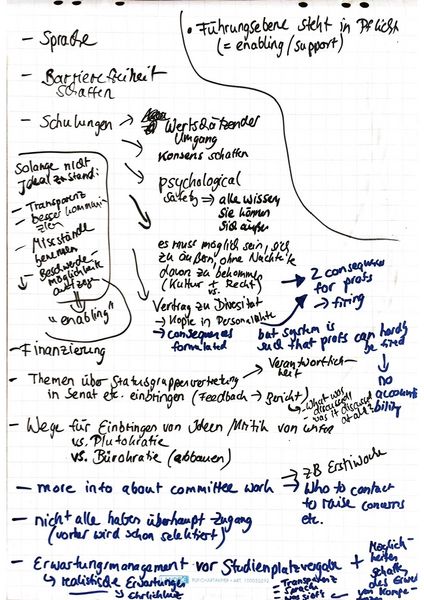 • Führungsebene steht in Pflicht
(= enabling/support)
- Sprache
- Barrierefreiheit
schaffen
- Schulungen →
Wertschätzender
Umgang
Konsens schaffen
psychological
safety → alle wissen
sie können
sich äußern
es muss möglich sein, sich
zu äußern, ohne Nachteile
davon zu bekommen
(Kultur + Recht)
vs.
Vertrag zu Diversität
→ Kopie in Personalakte
→ consequences
formulated
Solange nicht
Idealzustand:
- Transparenz
- besser kommuni-
zieren
- Missstände
benennen
- Beschwerde-
möglichkeiten
aufzeigen
"enabling"
→ 2 consequences
for profs
→ firing
but system is
such that profs can hardly
be fired
↓
no
accounta
bility
- Finanzierung
- Themen über Statusgruppenvertretung
in Senat etc. einbringen (Feedback → Bericht)
→ Verantwortlich-
keit
→ What was
discussed?
was it discussed
at all?
- Wege für Einbringen von Ideen/Kritik von unten
vs. Plutokratie
vs. Bürokratie (abbauen)
→ zB Erstiwoche
- more info about committee work → Who to contact
to raise concerns
etc.
- nicht alle haben überhaupt Zugang
(vorher wird schon selektiert)
- Erwartungsmanagement vor Studienplatzvergabe +
↳ realistische Erwartungen
→ Ehrlichkeit
- Transparenz
- Sprache
Möglich-
keiten
schaffen
des Erwerbs
von Kompe-